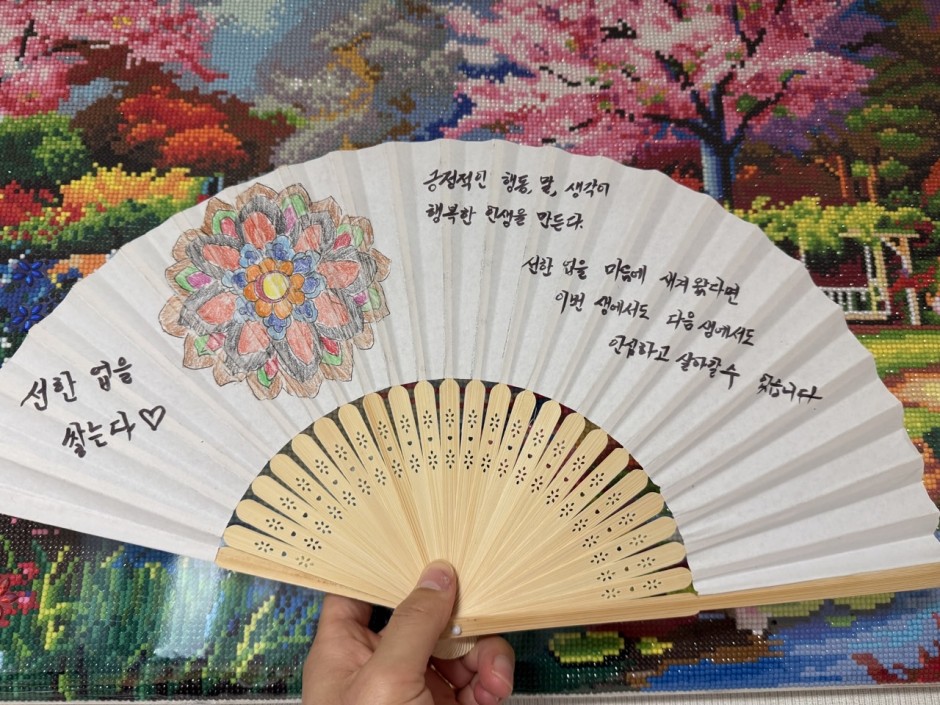 선한 업을
쌓는다♡
긍정적인 행동, 말, 생각이
행복한 인생을 만든다.
선한 업을 마음에 새겨 왔다면
이번 생에서도 다음 생에서도
안심하고 살아갈 수 있습니다